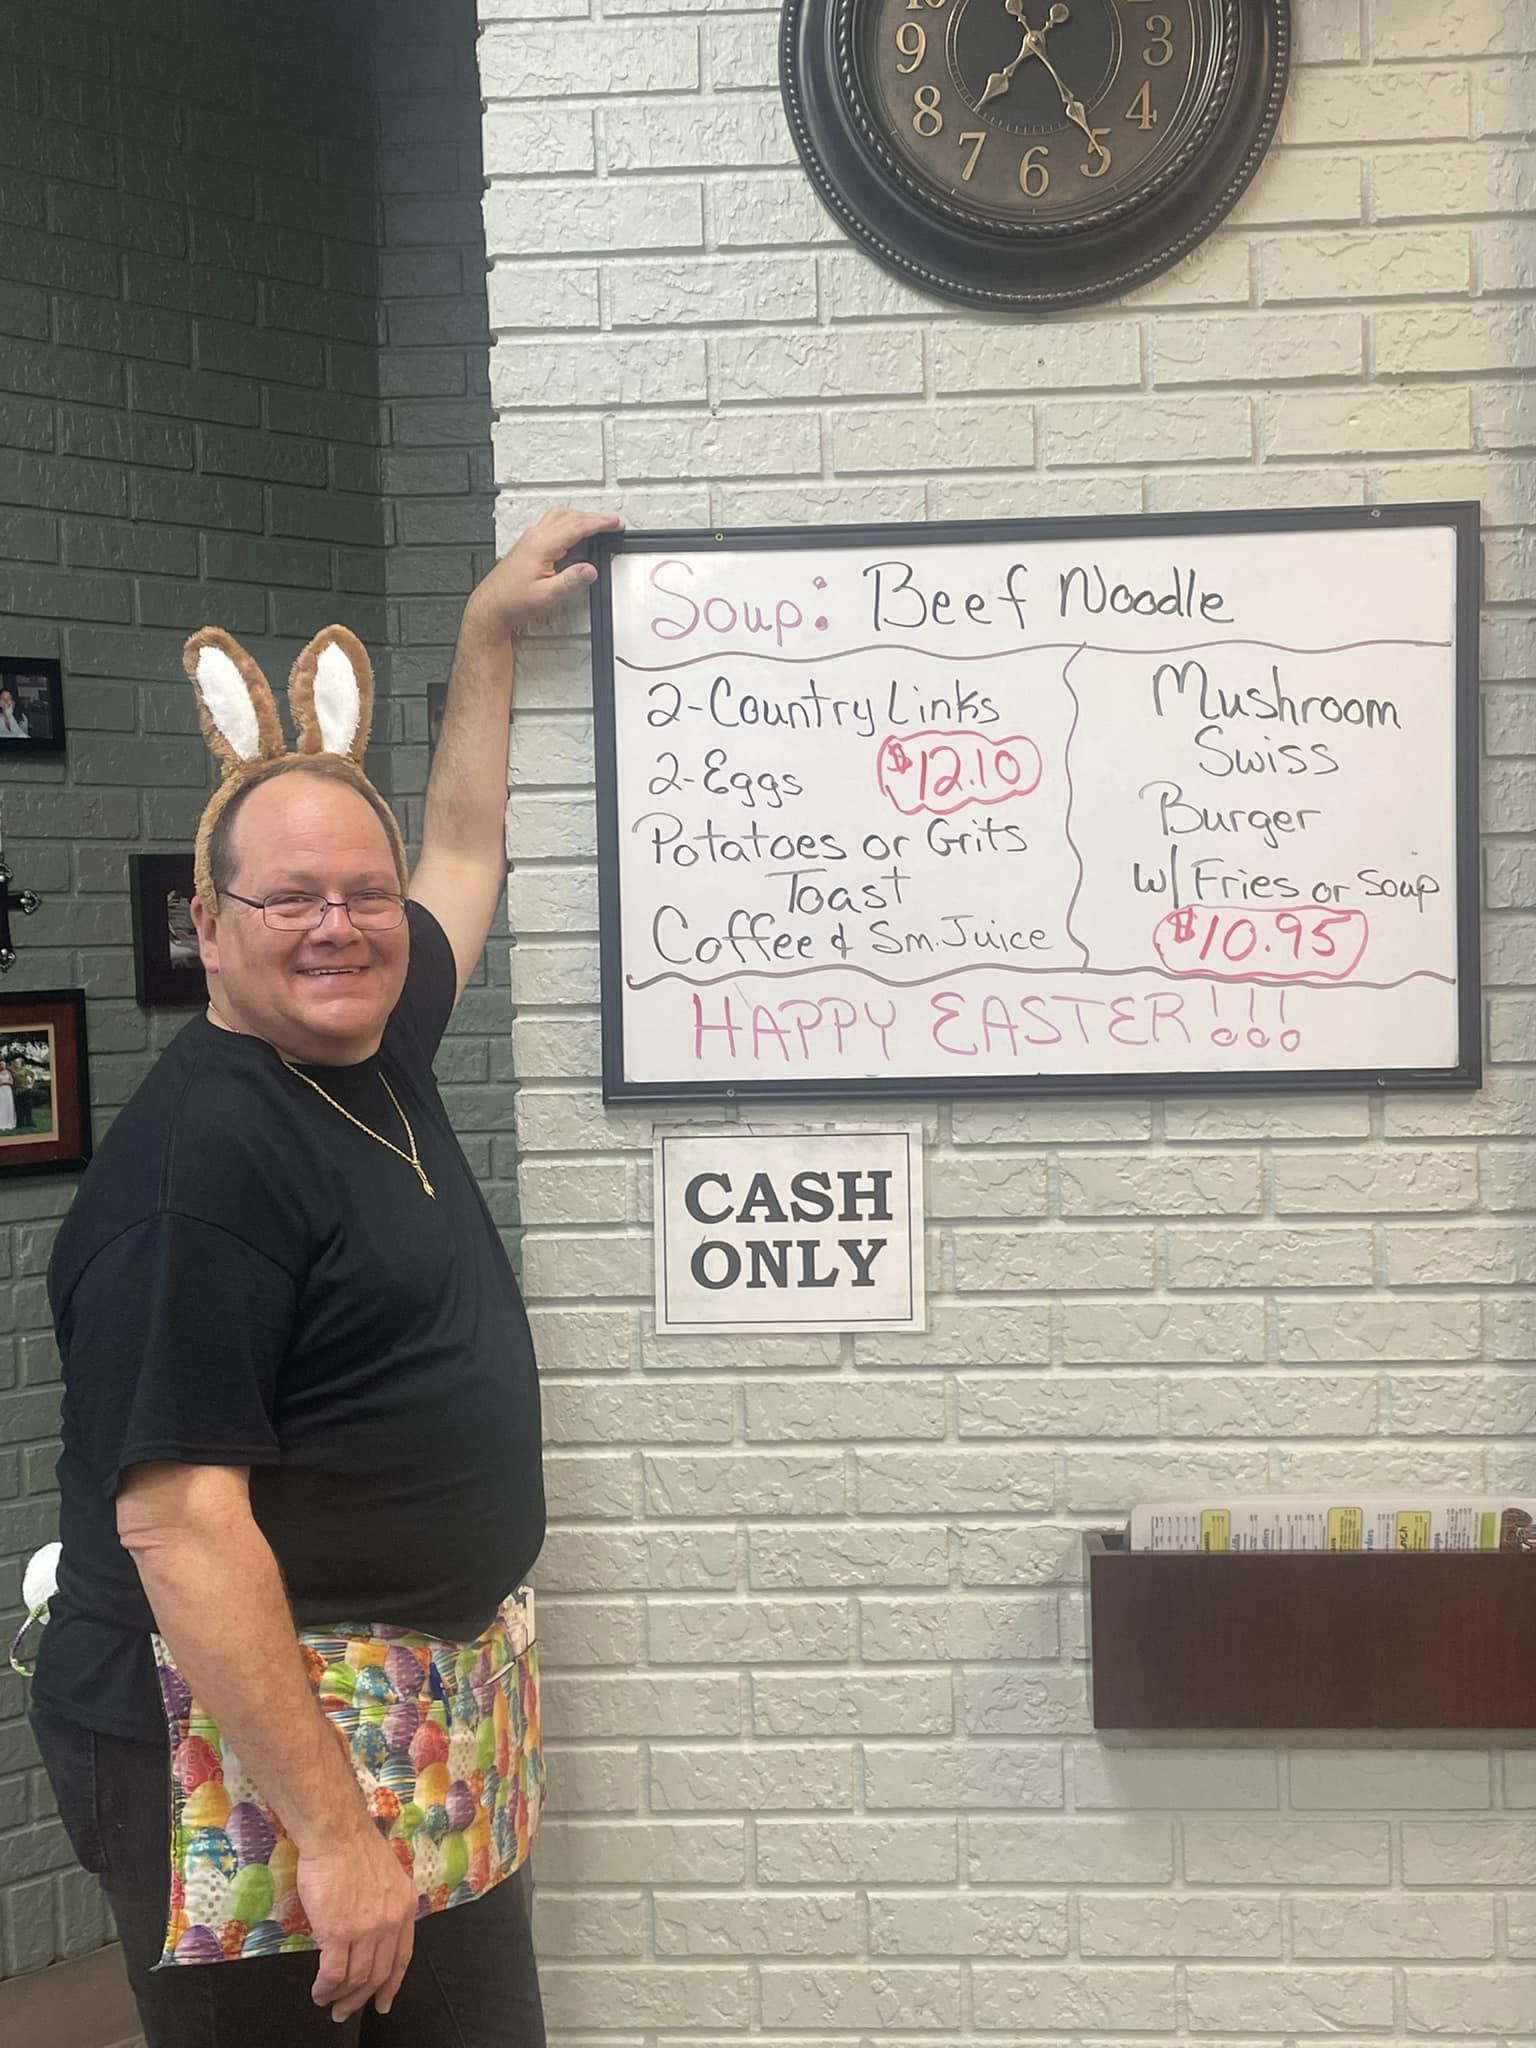 9
3
8
4
7
5
6
Soup: Beef Noodle
2-Country Links
2-Eggs $12.10
Potatoes or Grits
Toast
Coffee & Sm. Juice
Mushroom
Swiss
Burger
w/ Fries or Soup
$10.95
HAPPY EASTER!!!
CASH
ONLY